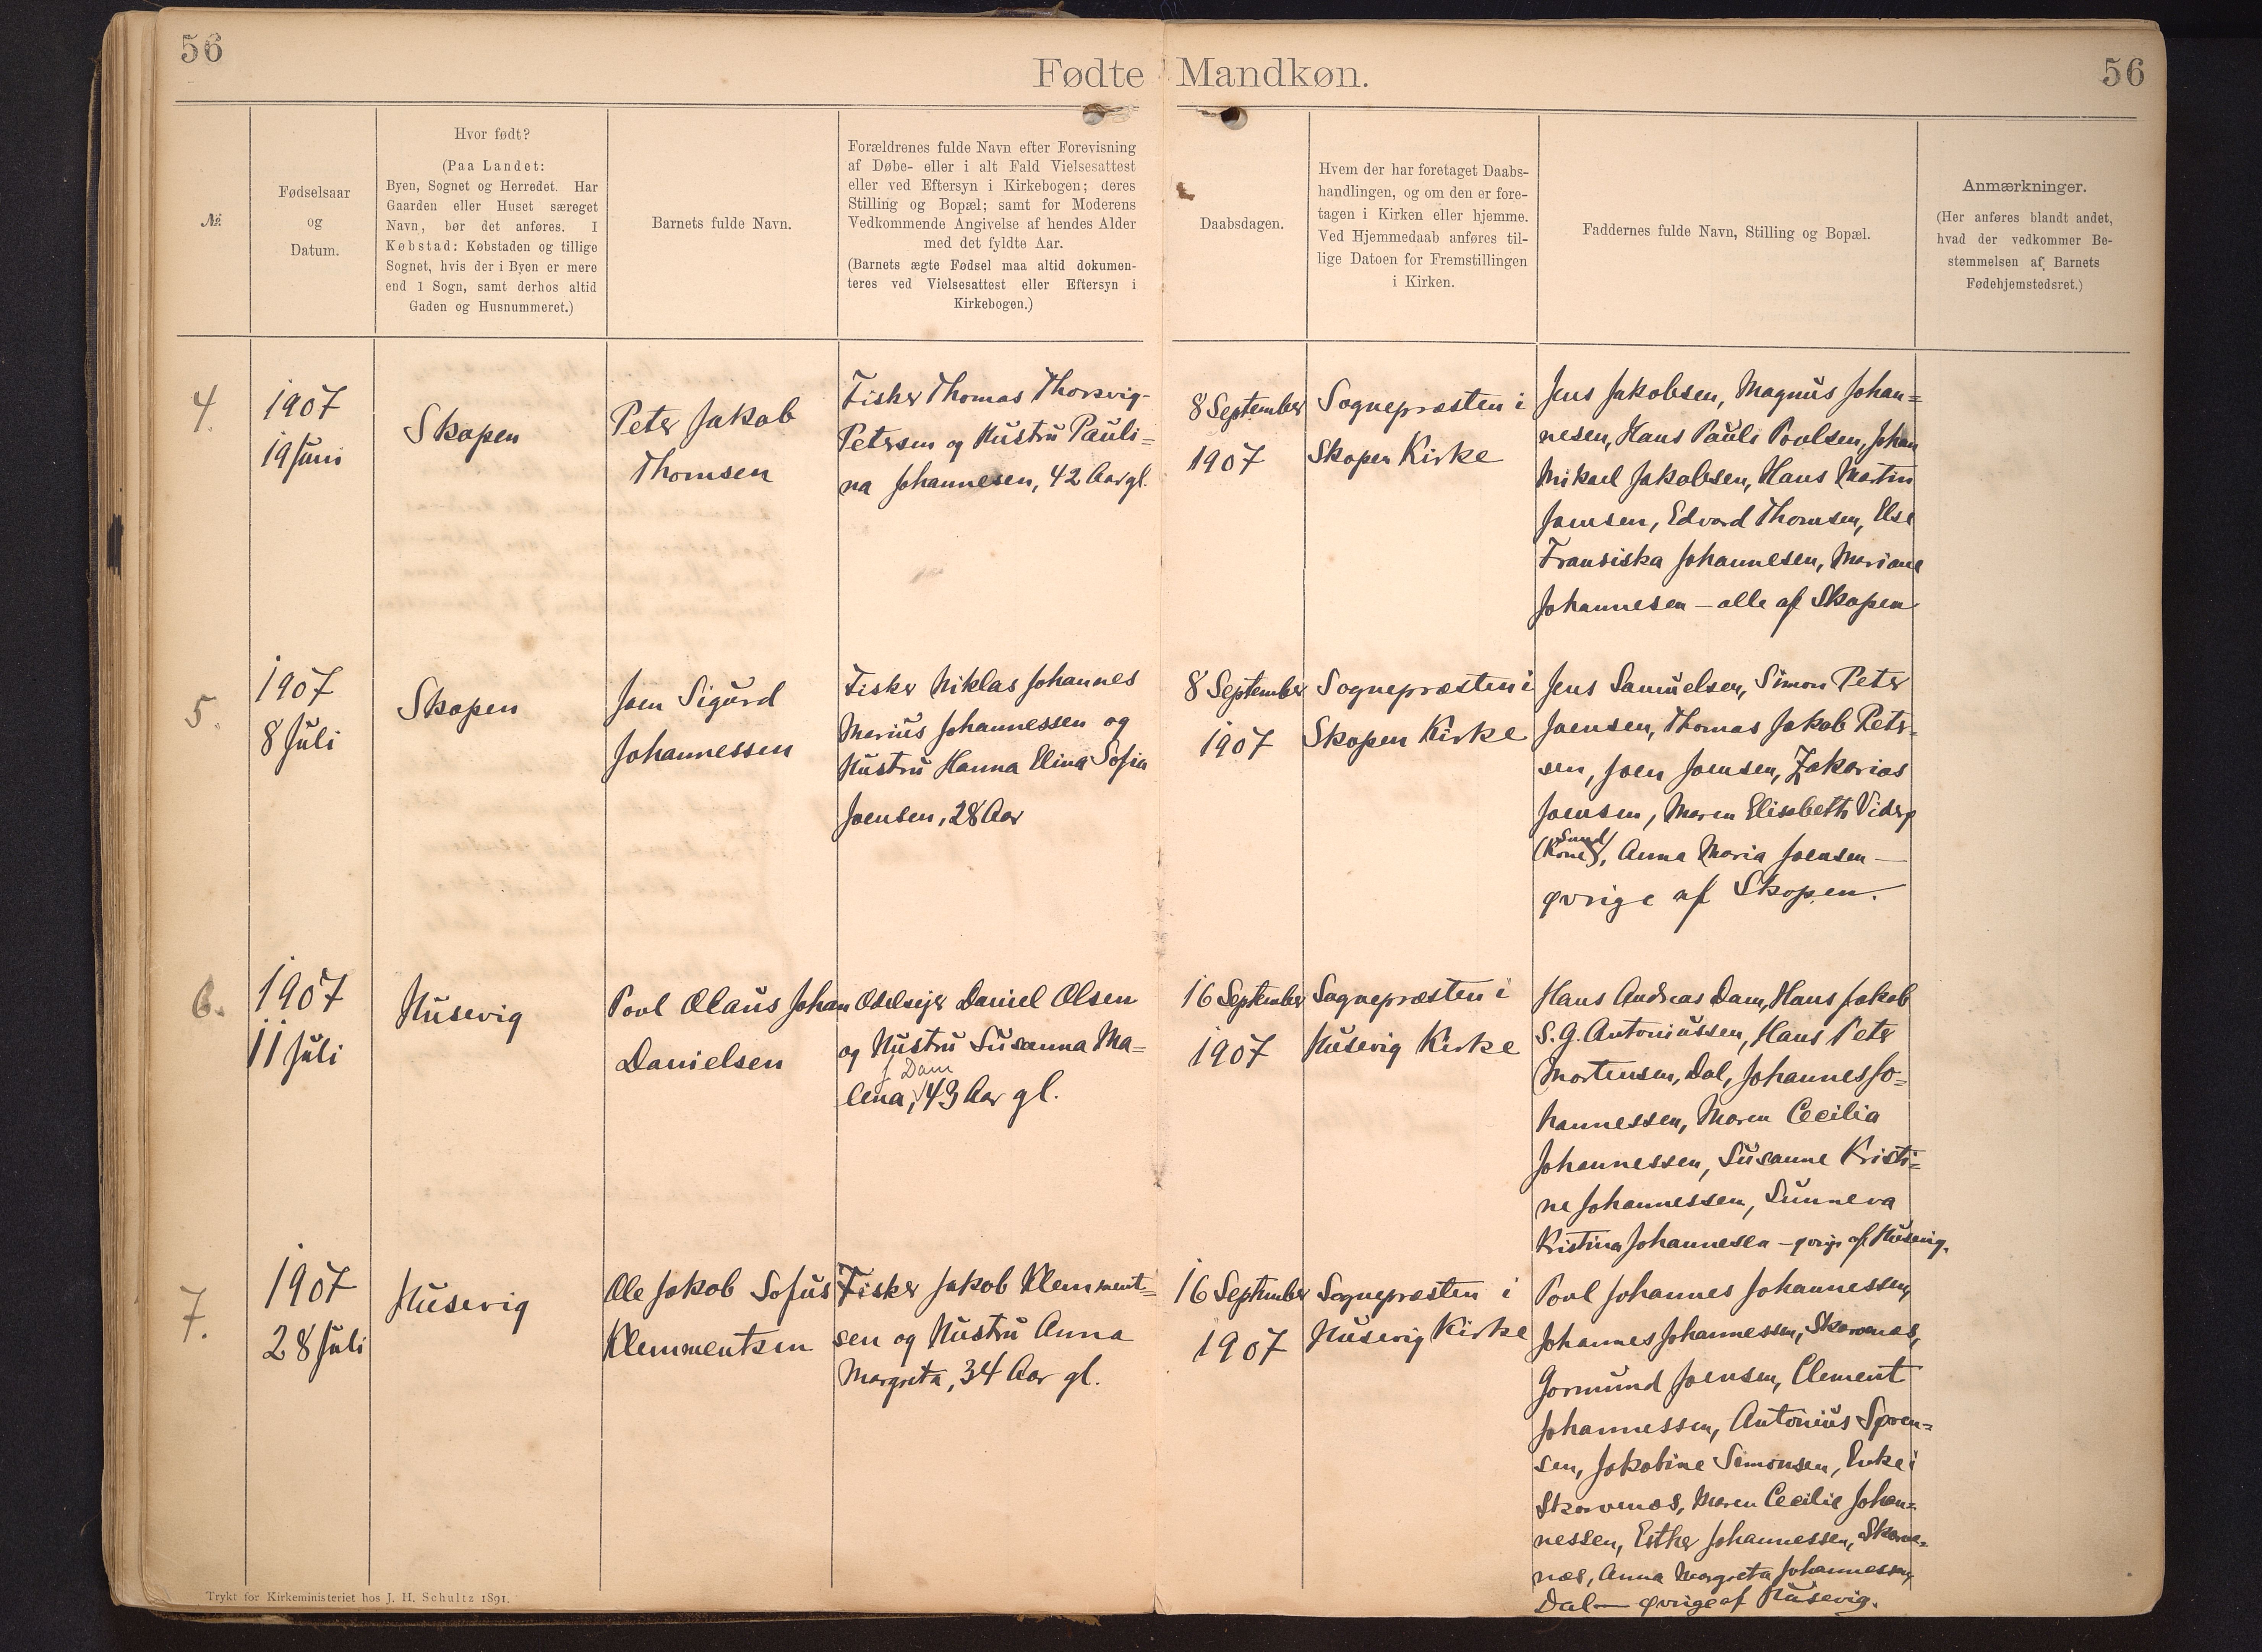 56
Fødte Mandkøn.
56
№
Fødselsaar
og
Datum.
Hvor født?
(Paa Landet:
Byen, Sognet og Herredet. Har
Gaarden eller Huset særeget
Navn, bør det anføres. I
Købstad: Købstaden og tillige
Sognet, hvis der i Byen er mere
end 1 Sogn, samt derhos altid
Gaden og Husnummeret.)
Barnets fulde Navn.
Forældrenes fulde Navn efter Forevisning
af Døbe- eller i alt Fald Vielsesattest
eller ved Eftersyn i Kirkebogen; deres
Stilling og Bopæl; samt for Moderens
Vedkommende Angivelse af hendes Alder
med det fyldte Aar.
(Barnets ægte Fødsel maa altid dokumen-
teres ved Vielsesattest eller Eftersyn i
Kirkebogen.)
Daabsdagen.
Hvem der har foretaget Daabs-
handlingen, og om den er fore-
tagen i Kirken eller hjemme.
Ved Hjemmedaab anføres til-
lige Datoen for Fremstillingen
i Kirken.
Faddernes fulde Navn, Stilling og Bopæl.
Anmærkninger.
(Her anføres blandt andet,
hvad der vedkommer Be-
stemmelsen af Barnets
Fødehjemstedsret.)
4.
1907
19 Juni
Skopen
Peter Jakob
Thomsen
Fisker Thomas Thorsvig-
Petersen og Hustru Pauli=
na Johannesen, 42 Aar gl.
8 September
1907
Sognepræsten i
Skopen Kirke
Jens Jakobsen, Magnus Johan=
nesen, Hans Pauli Poulsen, Johan
Mikael Jakobsen, Hans Martin
Joensen, Edvard Thomsen, Else
Fransiska Johannesen, Mariane
Johannesen – alle af Skopen
5.
1907
8 Juli
Skopen
Joen Sigurd
Johannessen
Fisker Niklas Johannes
Marius Johannessen og
Hustru Hanna Elina Sofia
Joensen, 28 Aar
8 September
1907
Sognepræsten i
Skopen Kirke
Jens Samuelsen, Simon Peter
Joensen, Thomas Jakob Peter-
sen, Joen Joensen, Zakarias
Joensen, Maren Elisabeth Viderø
(Sand)
Kone, Anna Maria Joensen —
øvrige af Skopen.
6.
1907
11 Juli
Husevig
Poul Olaus Johan
Danielsen
Odelsejer Daniel Olsen
og Hustru Susanna Ma=
f Dam
lena, 43 Aar gl.
16 September
1907
Sognepræsten i
Husevig Kirke
Hans Andreas Dam, Hans Jakob
S. G. Antoniussen, Hans Peter
Mortensen, Dal, Johannes Jo=
hannessen, Maren Cecilia
Johannessen, Susanne Kristi=
ne Johannessen, Sunneva
Kristina Johannesen – øvrige af Husevig.
7.
1907
28 Juli
Husevig
Ole Jakob Sofus
Klemmentsen
Fisker Jakob Klemment=
sen og Hustru Anna
Margreta, 34 Aar gl.
16 September
1907
Sognepræsten i
Husevig Kirke
Poul Johannes Johannessen,
Johannes Johannessen, Skarvenæs,
Gormund Joensen, Clement
Johannessen, Antonius Søren=
sen, Jakobine Simonsen, Enke i
Skarvenæs, Maren Cecilie Johan=
nessen, Esther Johannessen, Skarve=
næs, Anna Margreta Johannessen,
Dal — øvrige af Husevig.
Trykt for Kirkeministeriet hos J. H. Schultz 1891.